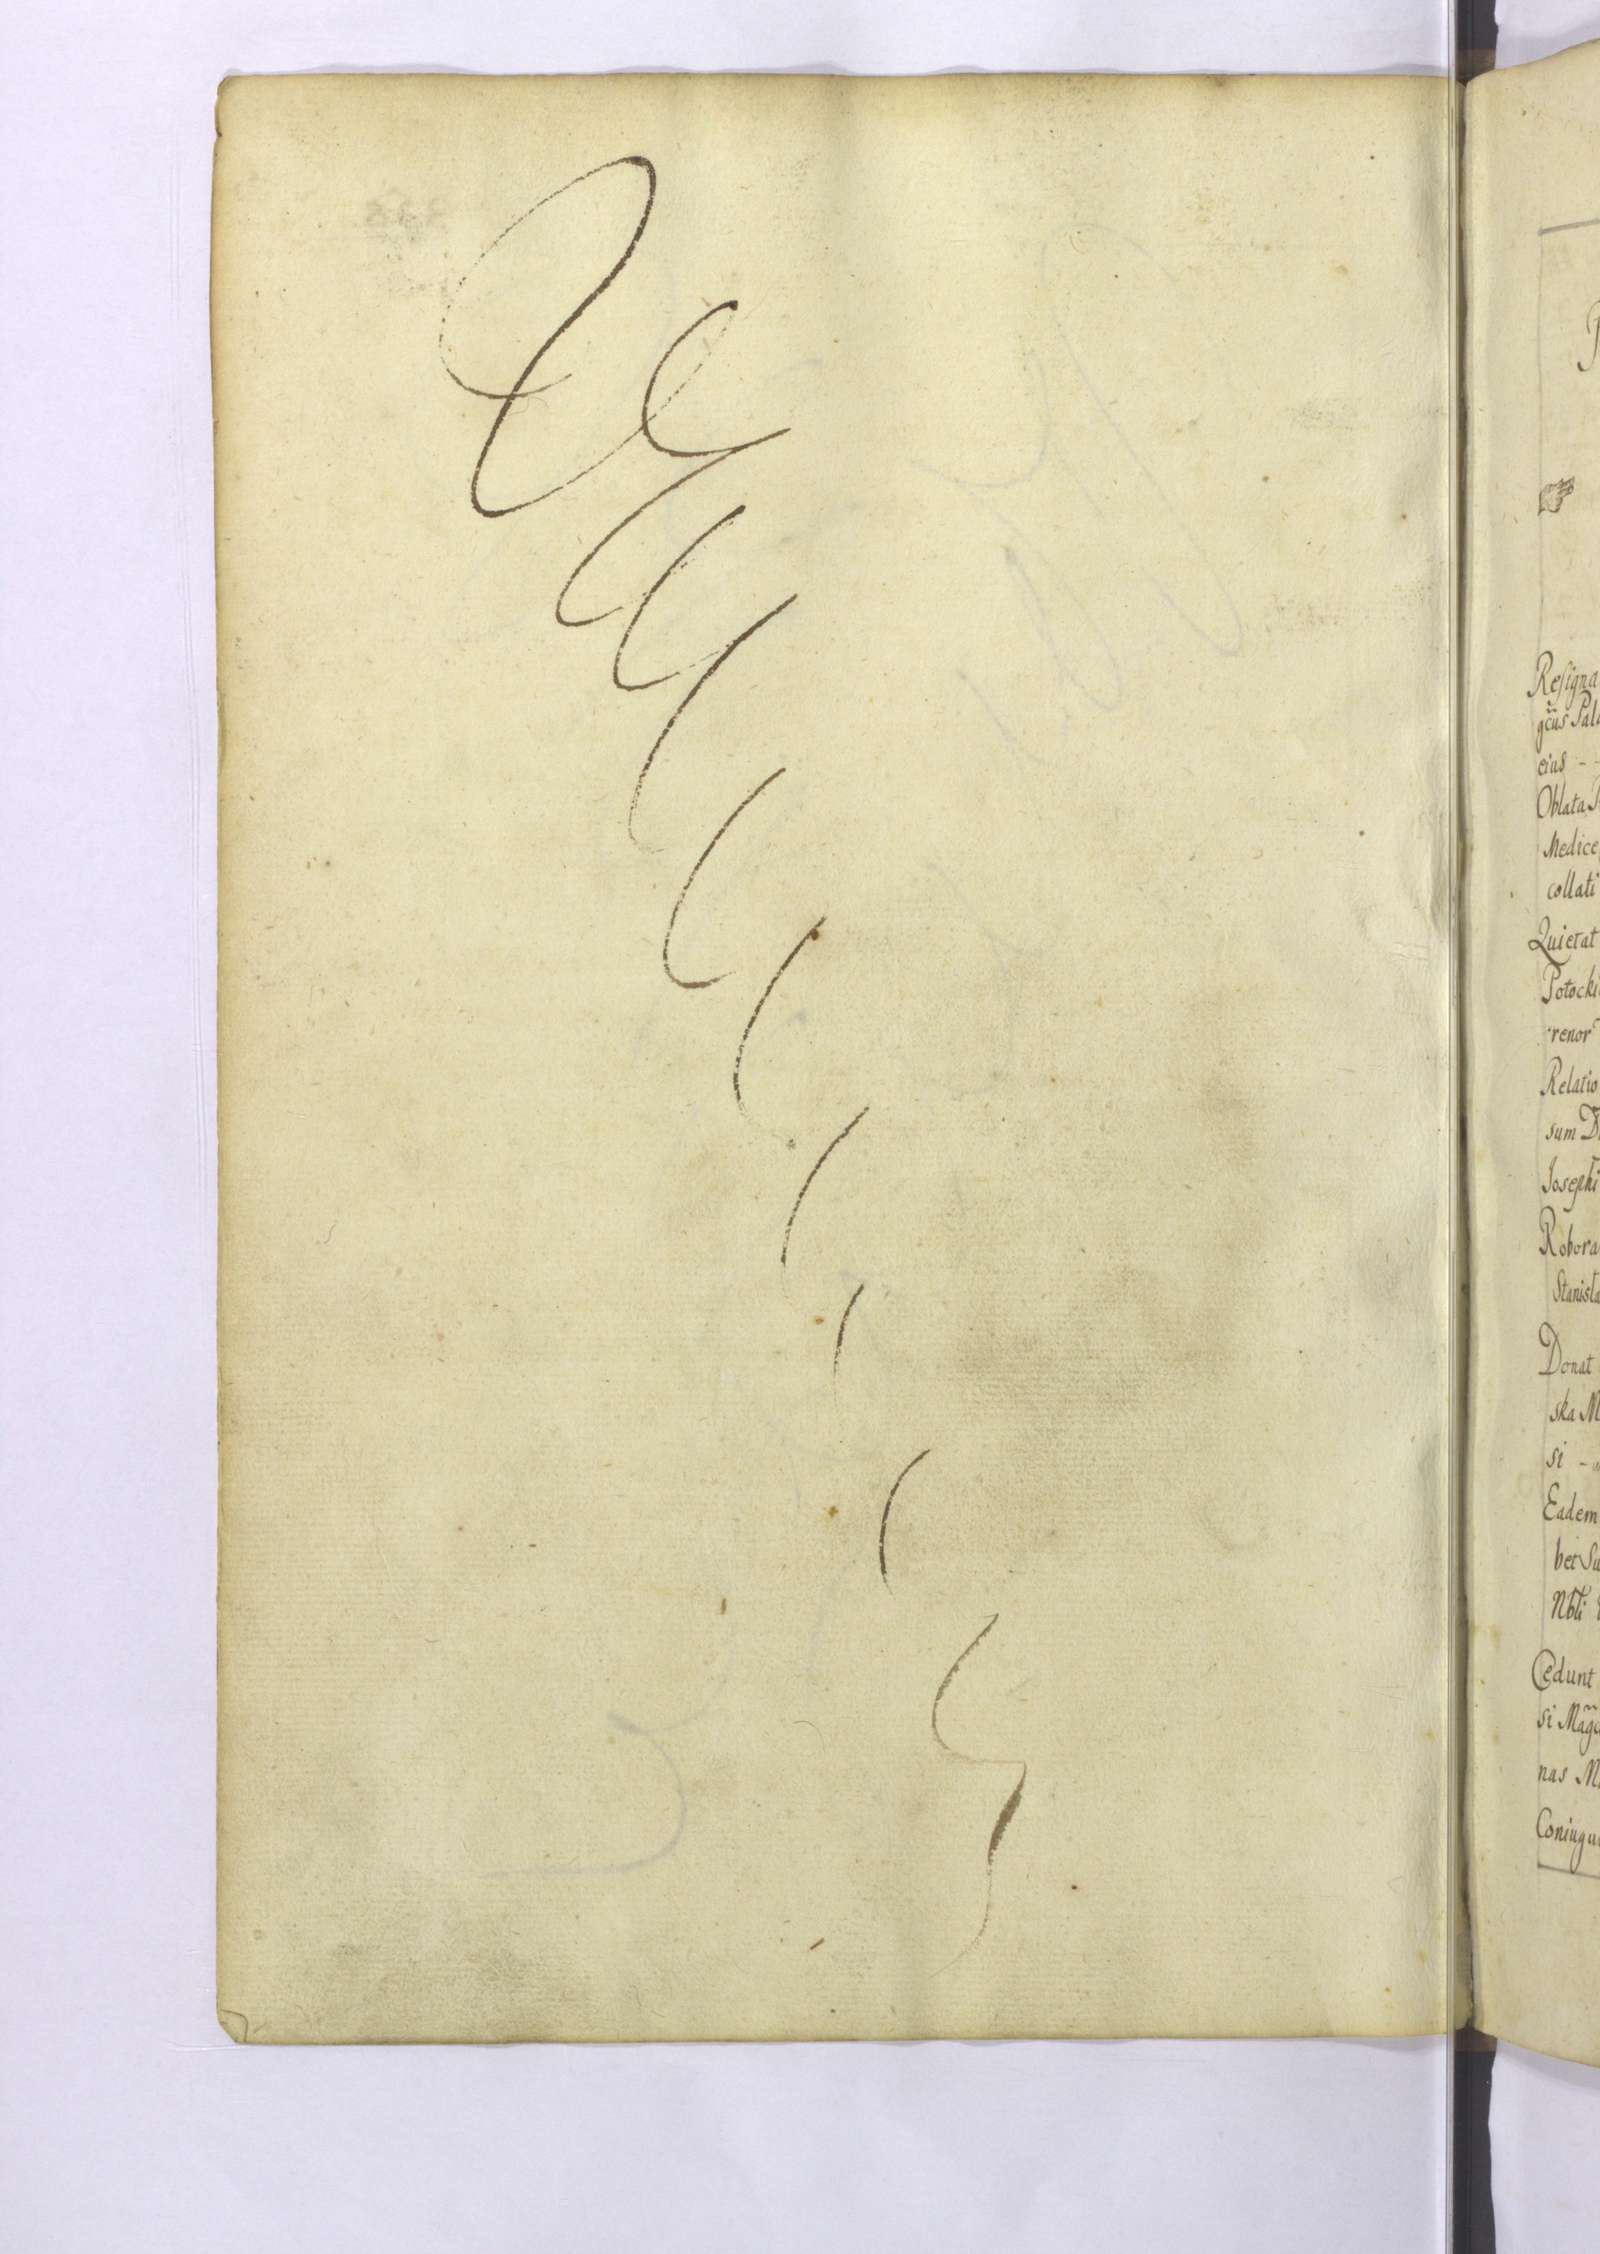 Resigna
gcus Pala
eius - -
Oblata
Medice
collati
Quietat
Potocki
renor
Relatio
sum D
Josephi
Robora
Stanisla
Donat
ska M
si -
Eadem
bet Su
Nbli
Cedunt
si Magc
nas M
Coniugu